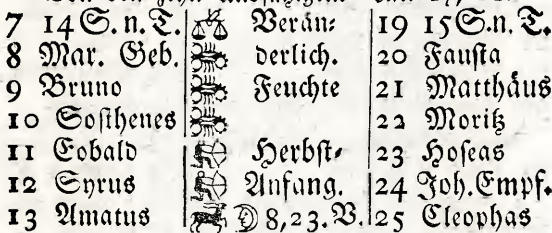 7 14 S. n. T. ♎ Verän⸗ 19 15 S. n. T.
8 Mar. Geb. ♏ derlich. 20 Fauſta
9 Bruno ♏ Feuchte 21 Matthäus
10 Soſthenes ♏ 22 Moritz
11 Cobald ♐ Herbſt⸗ 23 Hoſeas
12 Syrus ♐ Anfang. 24 Joh. Empf.
13 Amatus ♑ ☽ 8,23. V. 25 Cleophas